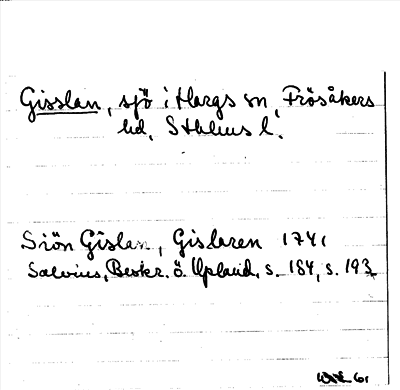 Gisslan, sjö i Hargs sn, Frösåkers
hd, Sthlms l.
Siön Gislan, Gislaren 1741
Salvius, Beskr. ö. Upland, s. 184, s. 193